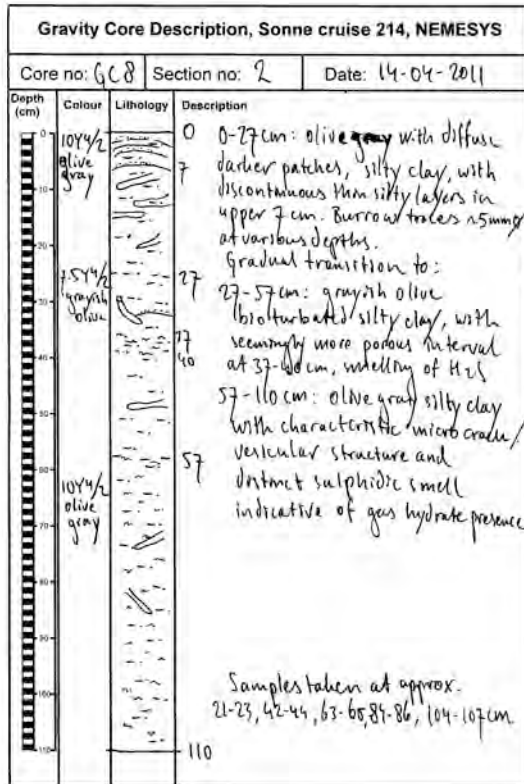 Gravity Core Description, Sonne cruise 214, NEMESYS
Core no: GC8 Section no: 2 Date: 14-04-2011
Depth (cm) Colour Lithology Description
0
10
20
30
40
50
60
70
80
90
100
110
10Y4/2
olive
gray
7.5Y4/2
grayish
olive
10Y4/2
olive
gray
0
7
27
37
40
57
110
0-27cm: olive gray with diffuse
darker patches, silty clay, with
discontinuous thin silty layers in
upper 7 cm. Burrow traces ~5mmø
at various depths.
Gradual transition to:
27-57cm: grayish olive
bioturbated silty clay, with
seemingly more porous interval
at 37-40cm, smelling of H2S
57-110cm: olive gray silty clay
with characteristic micro crack/
vesicular structure and
distinct sulphidic smell
indicative of gas hydrate presence
Samples taken at approx.
21-23, 42-44, 63-65, 84-86, 104-107cm